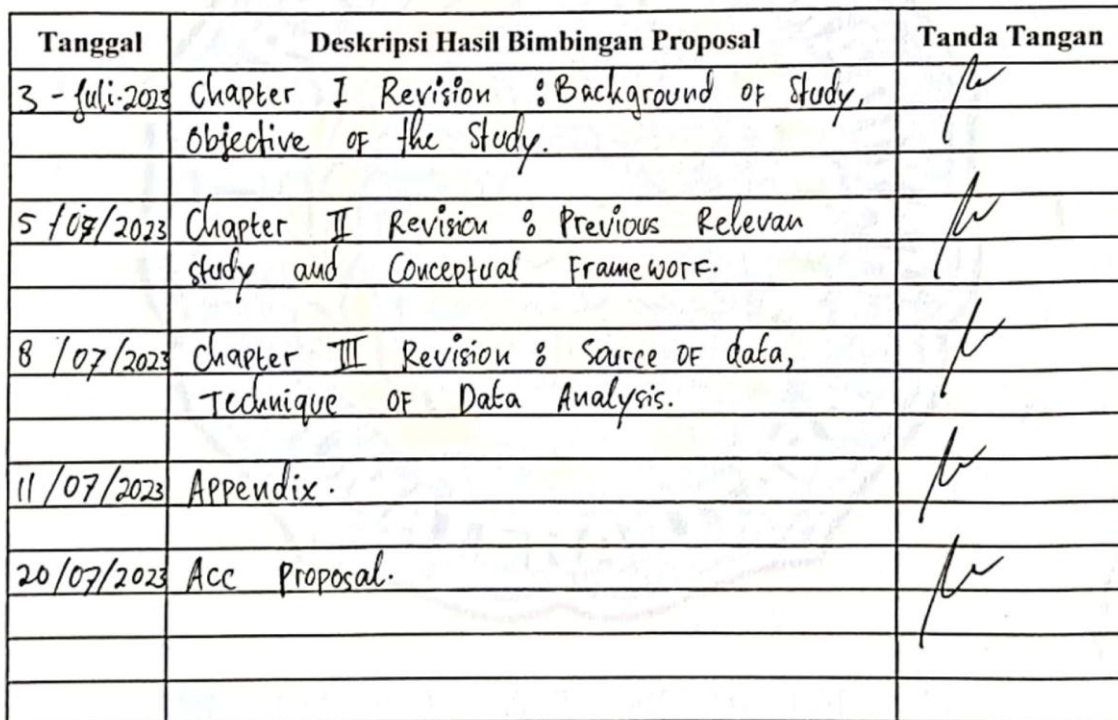 Tanggal Deskripsi Hasil Bimbingan Proposal Tanda Tangan
3 - Juli-2023 Chapter I Revision : Background of Study,
Objective of the Study.
5 /07/2023 Chapter II Revision : Previous Relevan
study and Conceptual Framework.
8 /07/2023 Chapter III Revision : Source of data,
Technique of Data Analysis.
11/07/2023 Appendix.
20/07/2023 Acc Proposal.